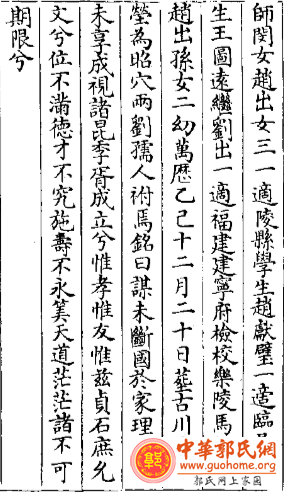 師閔女趙出女三一適陵縣學生趙獻璧一適臨
生王圖遠繼劉出一適福建建寧府檢校樂陵馬
趙出孫女二幼萬歷乙己十二月二十日塟古川
塋為昭穴兩劉孺人祔焉銘曰謀未斷國於家理
未享成視諸昆季胥成立兮惟孝惟友惟玆貞石庶允
文兮位不滿德才不究施壽不永筭天道茫茫諸不可
期限兮
中華郭氏網
www.guohome.org
郭氏网上家园